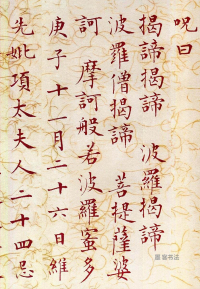 呪曰
揭諦揭諦 波羅揭諦
波羅僧揭諦 菩提薩婆
訶 摩訶般若波羅蜜多
庚子十一月二十六日維
先妣項太夫人二十四忌